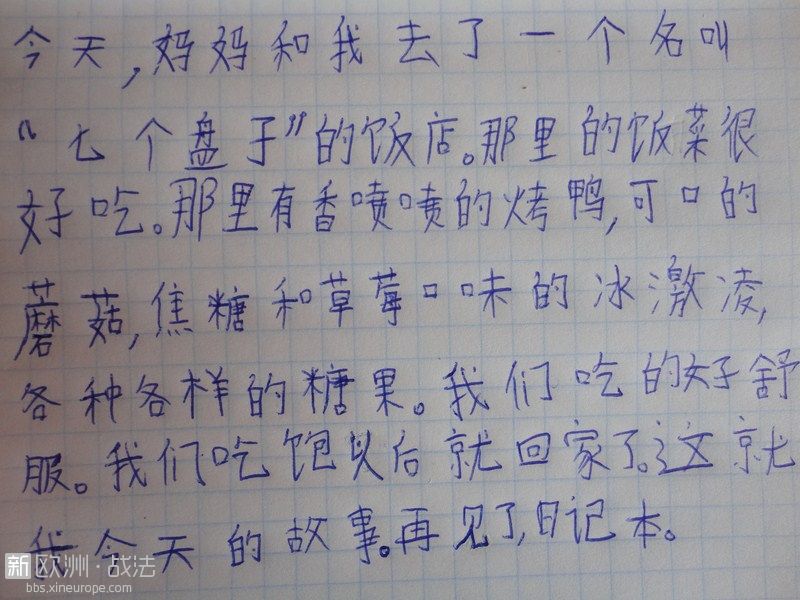 今天,妈妈和我去了一个名叫
“七个盘子”的饭店。那里的饭菜很
好吃。那里有香喷喷的烤鸭,可口的
蘑菇,焦糖和草莓口味的冰激凌,
各种各样的糖果。我们吃的好舒
服。我们吃饱以后就回家了。这就
我今天的故事。再见了,日记本。
新欧洲·战法
bbs.xineurope.com